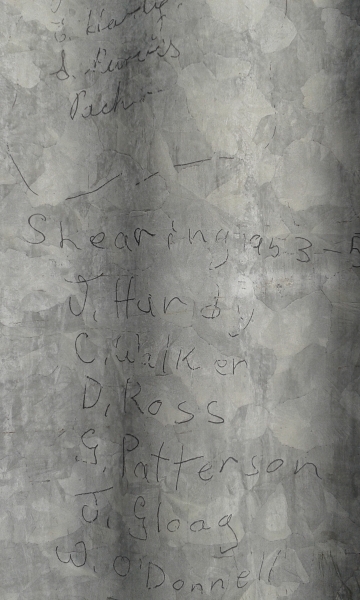 J. Hardy
S.
Shearing 1953-5
J. Hardy
C. Walker
D. Ross
G. Patterson
J. Gloag
W. O'Donnell